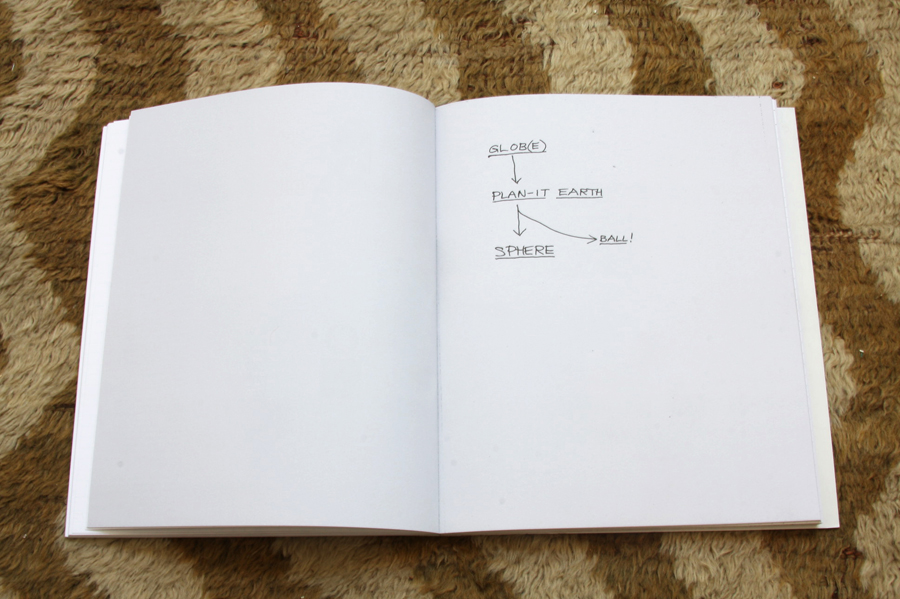 GLOB(E)
PLAN-IT EARTH
BALL!
SPHERE